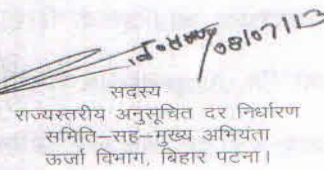 08/07/113
सदस्य
राज्यस्तरीय अनुसूचित दर निर्धारण
समिति–सह–मुख्य अभियंता
ऊर्जा विभाग, बिहार पटना।